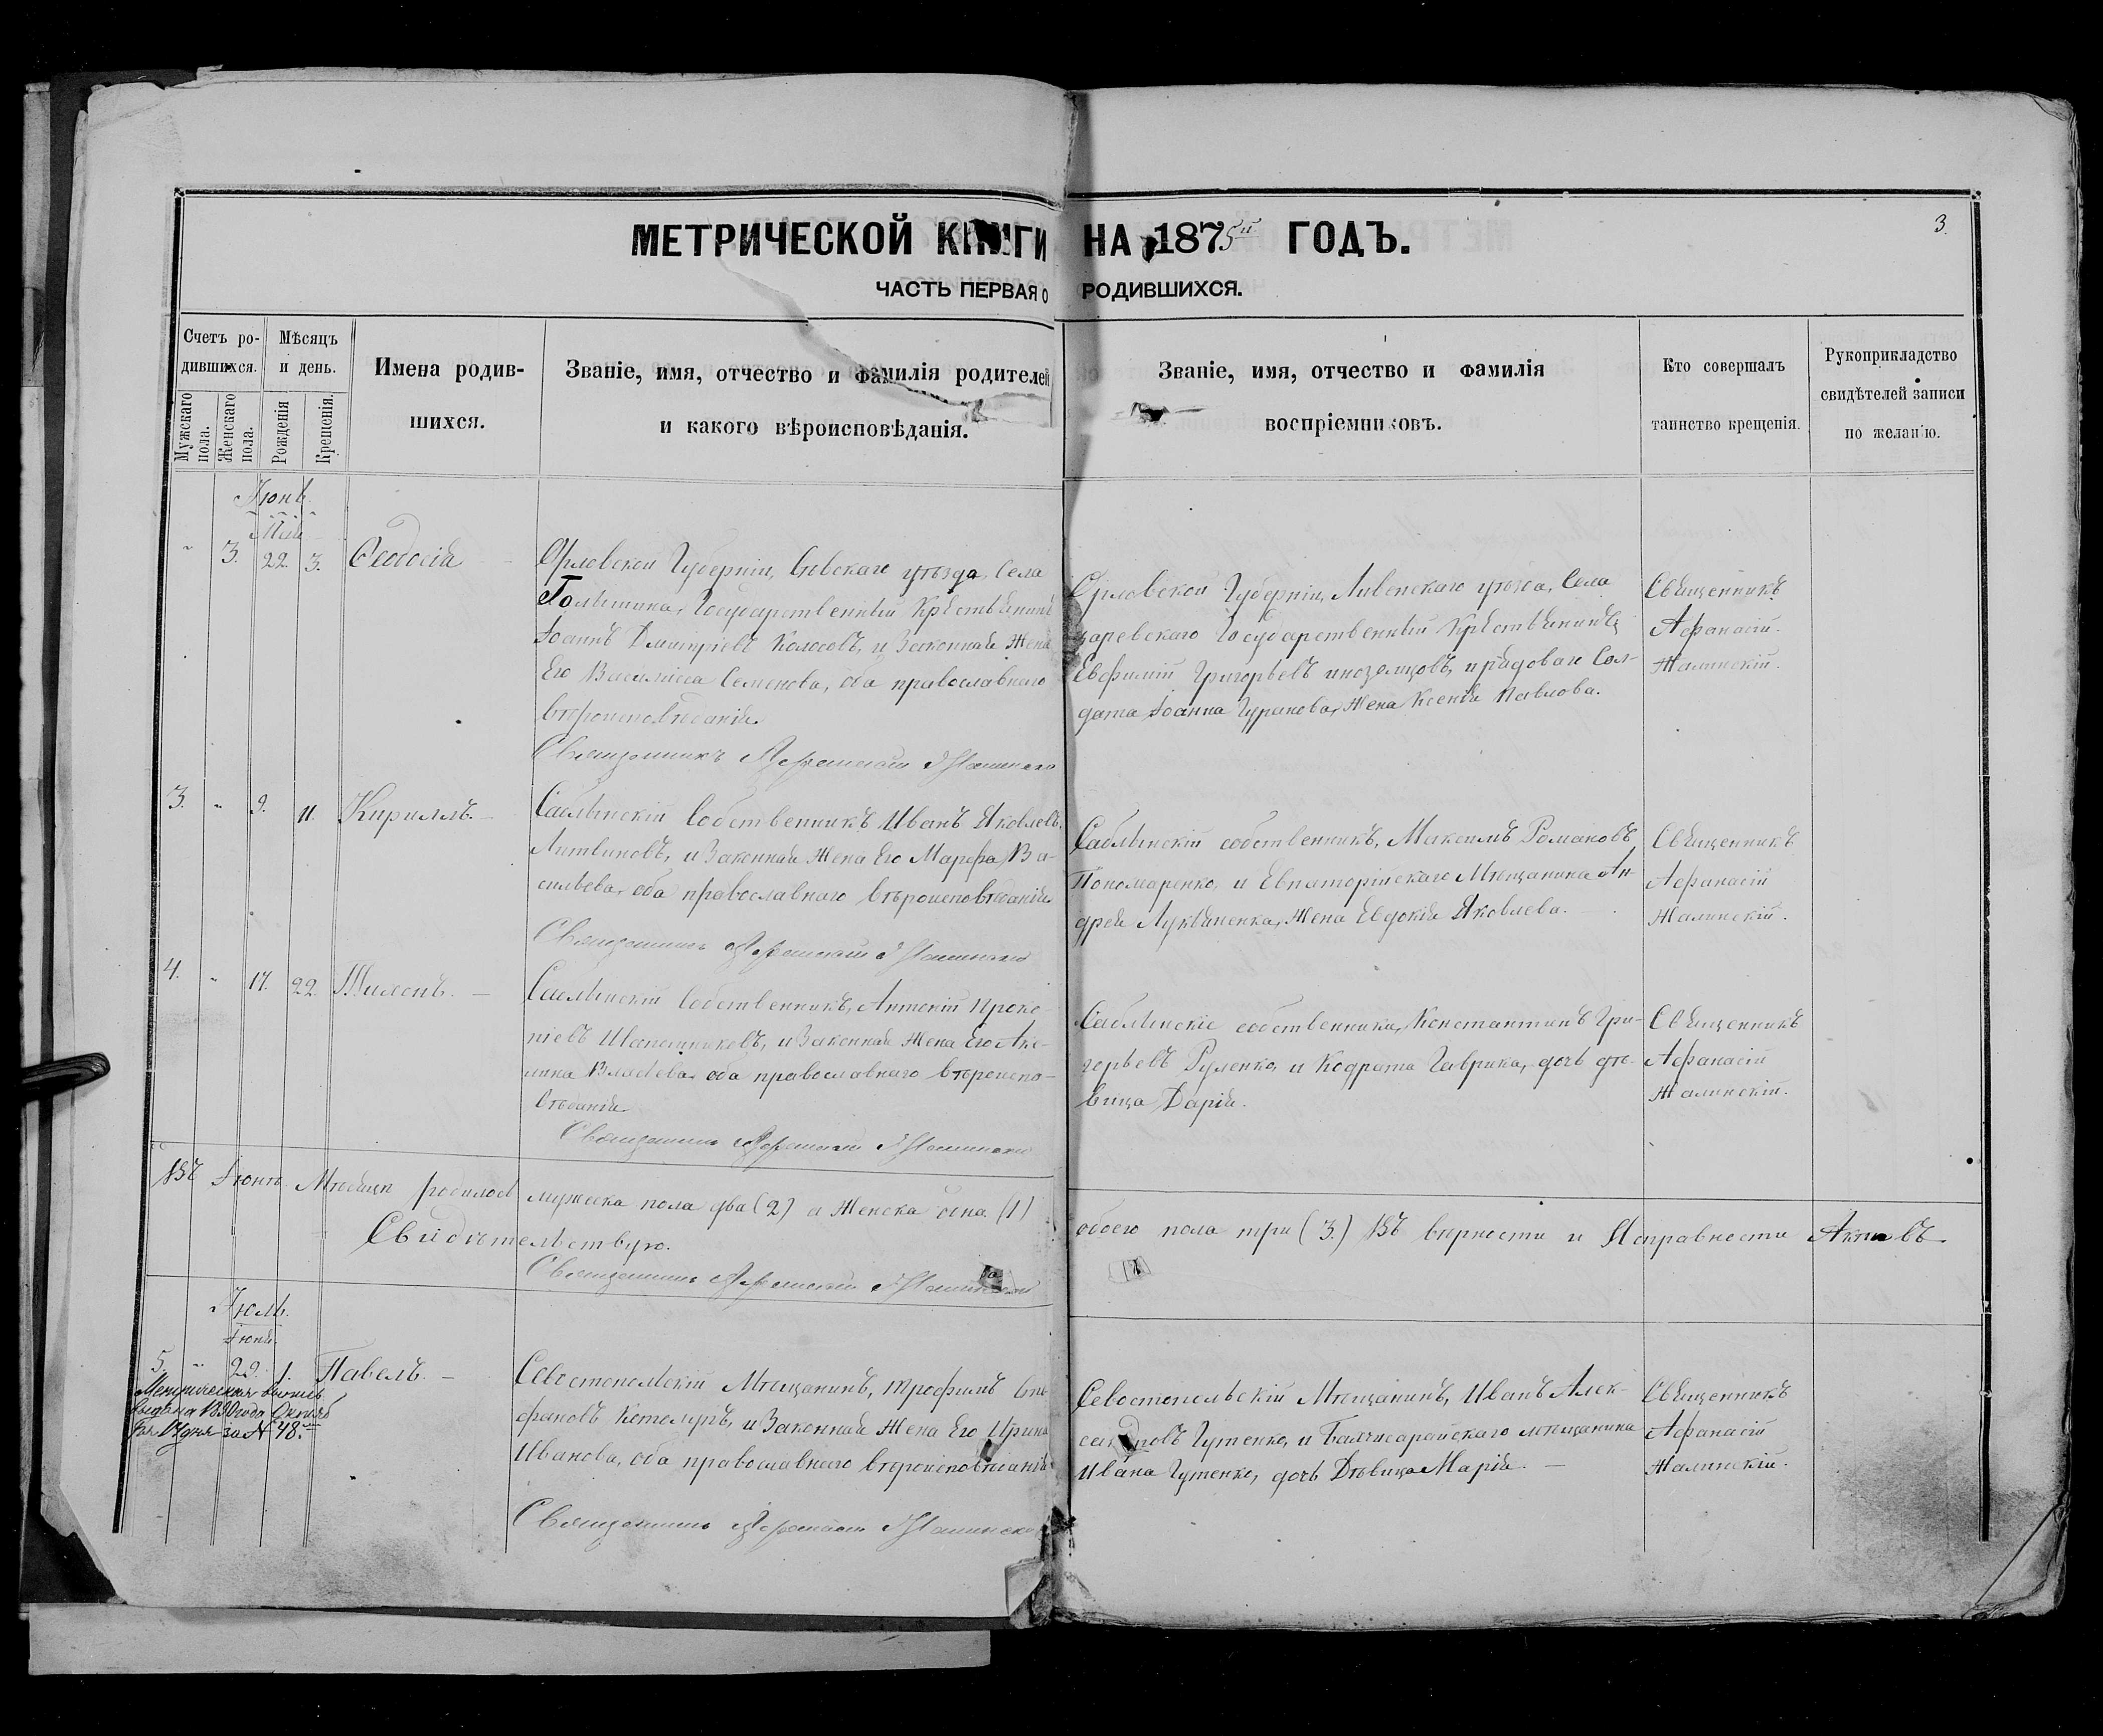 МЕТРИЧЕСКОЙ КНИГИ НА 1875й ГОДЪ.
3.
ЧАСТЬ ПЕРВАЯ О РОДИВШИХСЯ.
Счетъ ро-
дившихся.
Мужскаго пола.
Женскаго пола.
Мѣсяцъ
и день.
Рожденія
Крещенія.
Имена родив-
шихся.
Званіе, имя, отчество и фамилія родителей
и какого вѣроисповѣданія.
Званіе, имя, отчество и фамилія
воспріемниковъ.
Кто совершалъ
таинство крещенія.
Рукоприкладство
свидѣтелей записи
по желанію.
Іюнь.
Мая
" 3. 22. 3. Ѳеодосія
Орловской Губерніи, Севскаго уѣзда, Села
Государственный Крестьянинъ
Іоаннъ Дмитріевъ Колосовъ, и Законная Жена
Его Василиса Семенова, оба православнаго
вѣроисповѣданія.
Священникъ Афанасій Жалинскій
Орловской Губерніи, Ливенскаго уѣзда, Села
Государственный Крестьянинъ
Евфимій Григорьевъ иноземцовъ, и рядоваго Сол-
дата Іоанна Гуранова, Жена Ксенія Павлова.
Священникъ
Афанасій
Жалинскій.
3. " 9. 11. Кириллъ. —
Саблынскій Собственникъ Иванъ Яковлевъ
Литвиновъ, и Законная Жена Его Марфа Ва-
сильева, оба православнаго вѣроисповѣданія
Священникъ Афанасій Жалинскій
Саблынскій собственникъ, Максимъ Романовъ
Пономаренко, и Евпаторійскаго Мѣщанина Ан-
дрея Лукьяненка, Жена Евдокія Яковлева.
Священникъ
Афанасій
Жалинскій.
4. " 17. 22. Тимонъ. —
Саблынскій Собственникъ, Антоній Проко-
піевъ и Законная Жена Его Аку-
лина Власьева, оба православнаго вѣроиспо-
вѣданія.
Священникъ Афанасій Жалинскій
Саблынскіе собственники, Константинъ Гри-
горьевъ Руленко, и Кодрата Гаврика, дочь дѣ-
вица Дарія.
Священникъ
Афанасій
Жалинскій.
Въ Іюнѣ Мѣсяцѣ родилось мужеска пола два (2) а Женска одна (1) обоего пола три (3.) Въ вѣрности и Исправности Актовъ
Свидѣтельствую.
Священникъ Афанасій Жалинскій
Іюль.
Іюня.
5. " 29. 1. Павелъ. —
Метрическая выпись
выдана 1890 года Октяб
ря 14 дня за № 48.
Севостопольскій Мѣщанинъ, Трофимъ Епи-
фановъ Котляръ, и Законная Жена Его Ирина
Иванова, оба православнаго вѣроисповѣданія
Священникъ Афанасій Жалинскій
Севостопольскій Мѣщанинъ, Иванъ Алек-
сандровъ Гутенко, и Бахчисарайскаго мѣщанина
Ивана Гутенко, дочь Дѣвица Марія. —
Священникъ
Афанасій
Жалинскій.